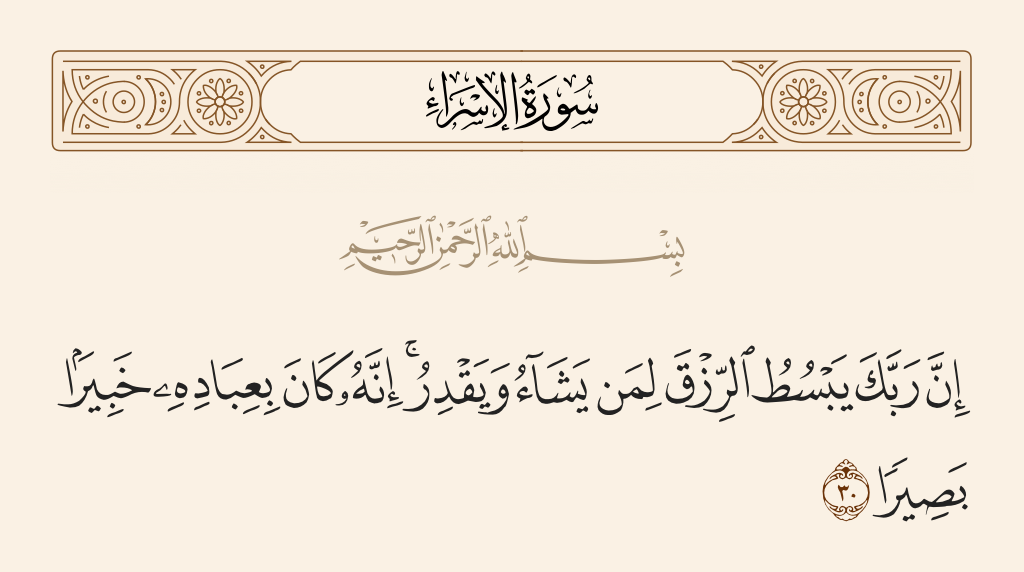 سُورَةُ الإِسْرَاءِ
بِسْمِ ٱللَّهِ ٱلرَّحْمَٰنِ ٱلرَّحِيمِ
إِنَّ رَبَّكَ يَبْسُطُ ٱلرِّزْقَ لِمَن يَشَآءُ وَيَقْدِرُ ۚ إِنَّهُۥ كَانَ بِعِبَادِهِۦ خَبِيرًۢا
بَصِيرًا ٣٠